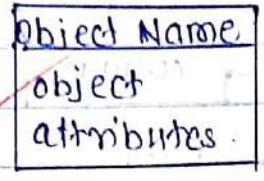 Object Name
object
attributes.